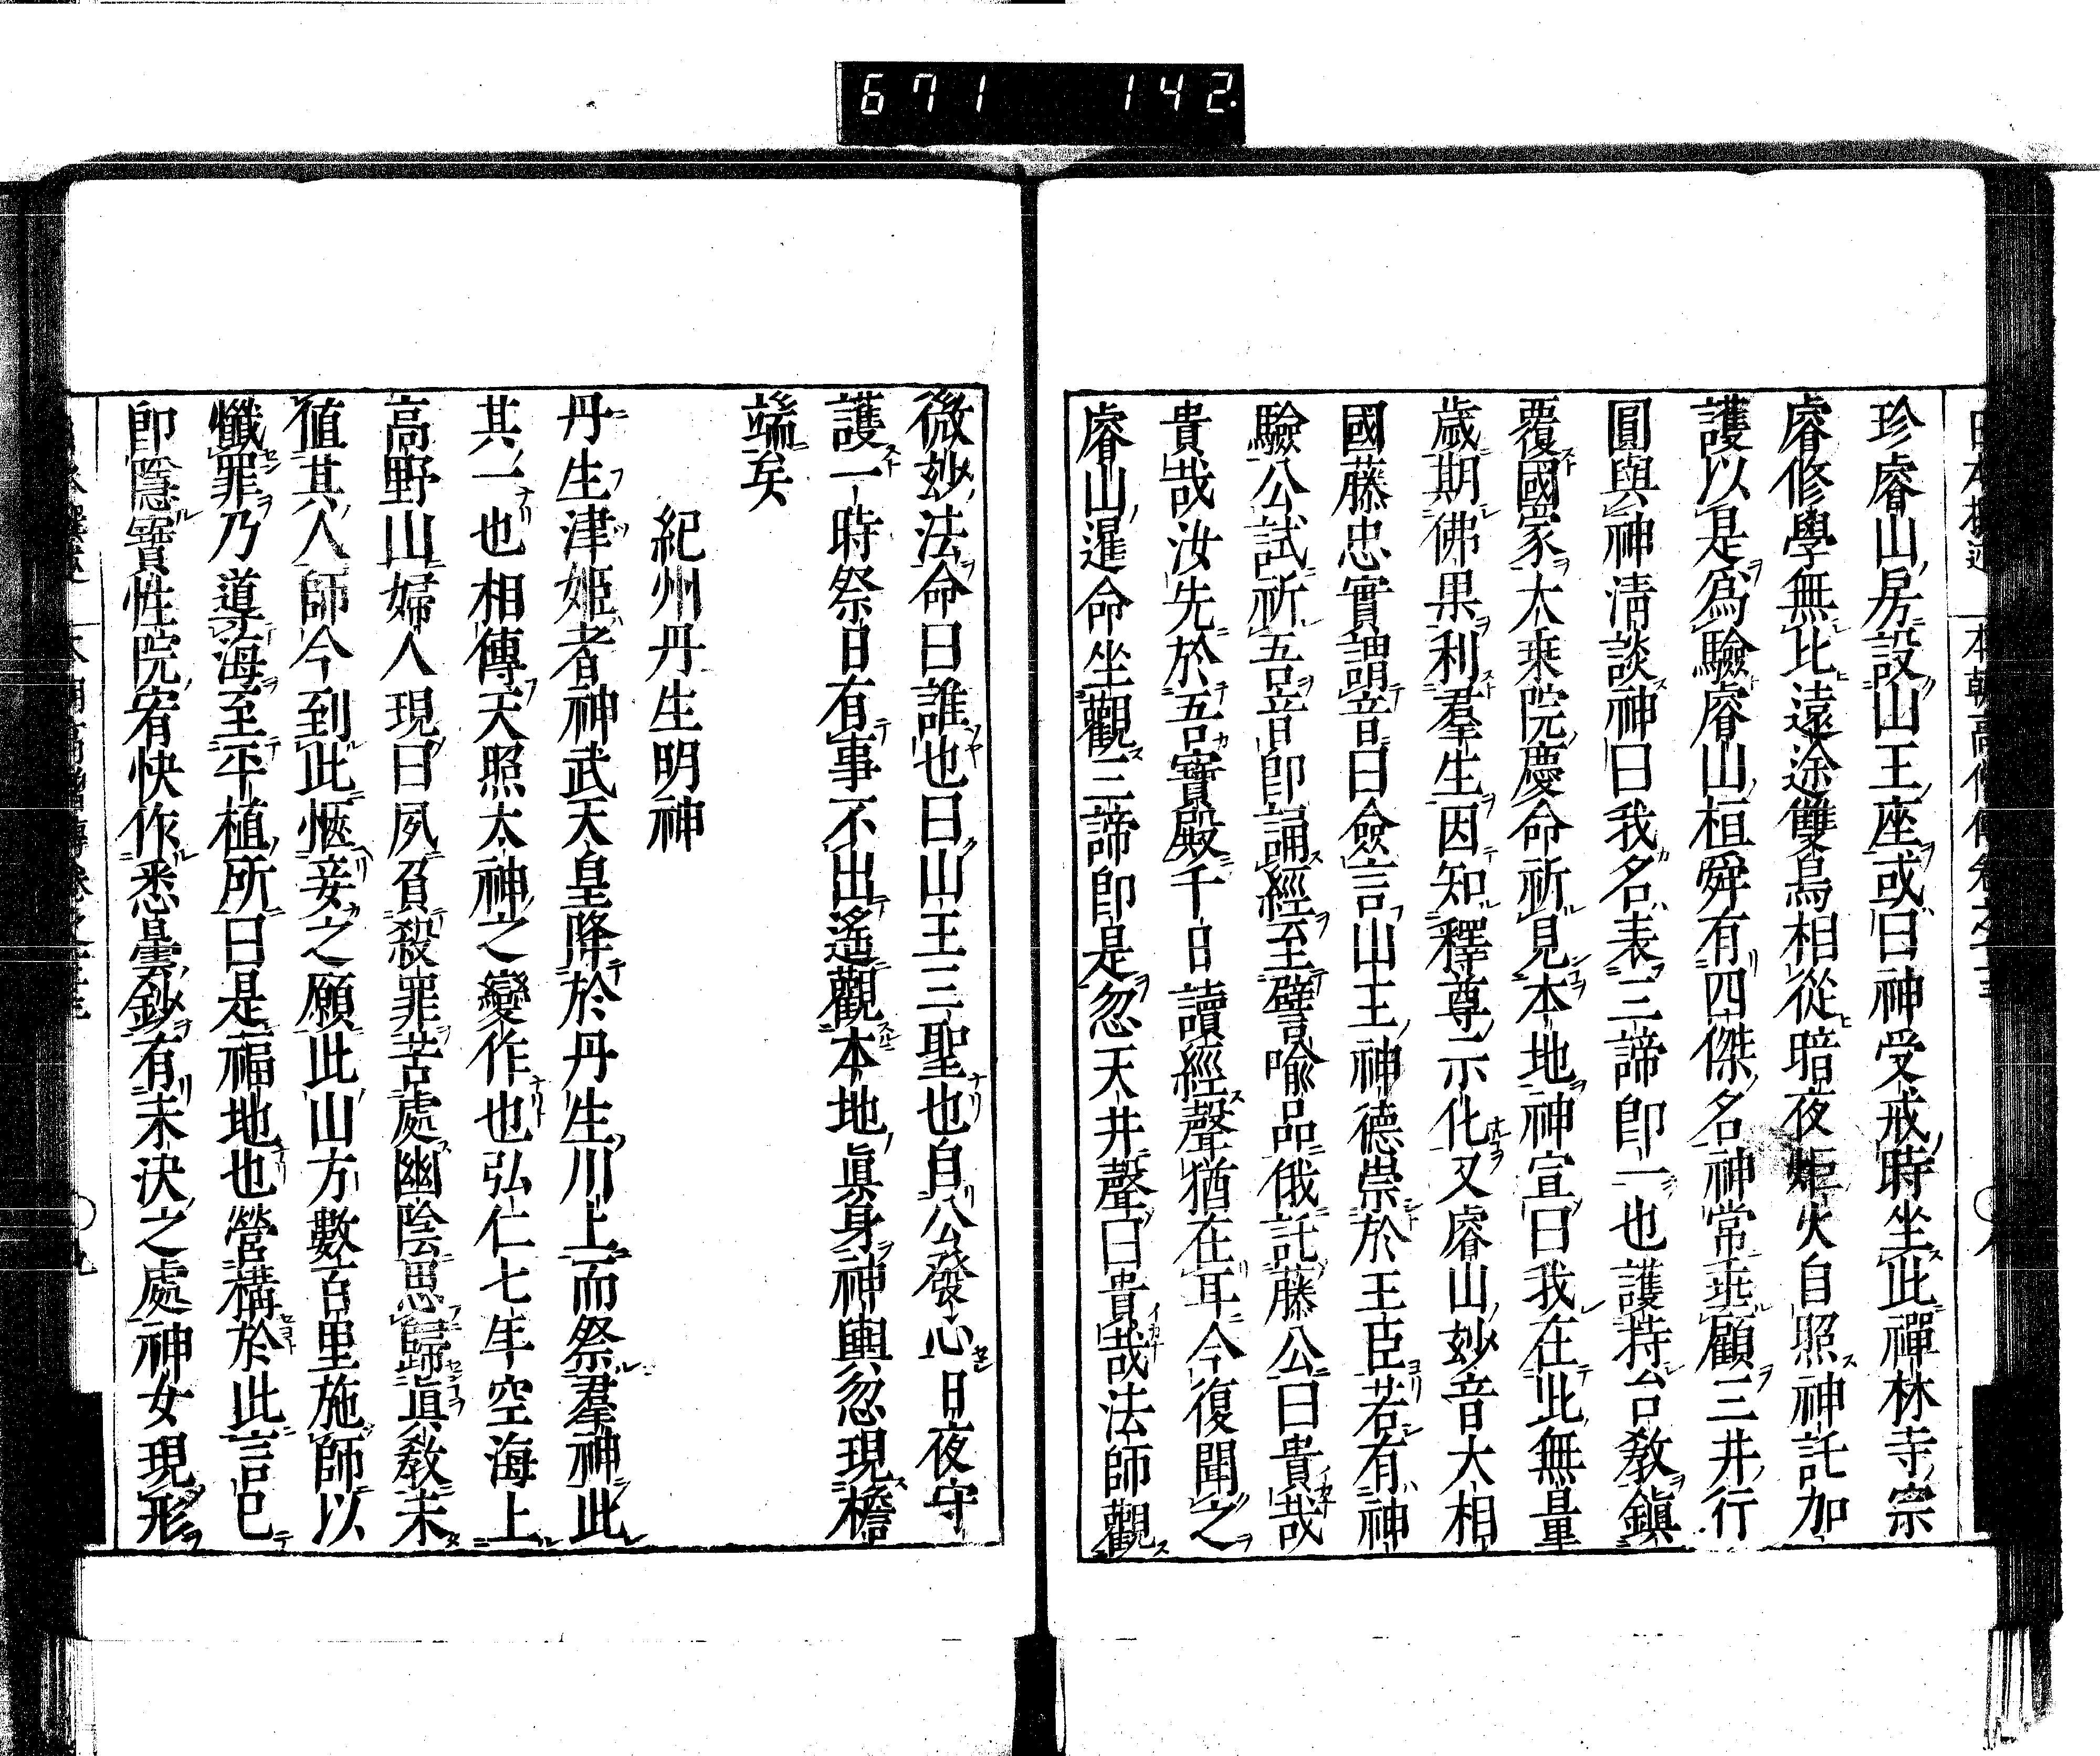 671 142.
珍睿山房設山王座或曰神受戒時坐此禪林寺宗
睿修學無比遠途雙鳥相從暗夜炬火自照神託加
護以是爲驗睿山桓舜有四傑名神常垂顧三井行
圓與神淸談神曰我名表三諦卽一也護持台敎鎭
覆國家大乘院慶命祈見本地神宣曰我在此無量
歲期佛果利羣生因知釋尊示化又睿山妙音大相
國藤忠實謂音曰僉言山王神德崇於王臣若有神
驗公試祈吾音卽誦經至譬喩品俄託藤公曰貴哉
貴哉汝先於吾寶殿千日讀經聲猶在耳今復聞之
睿山暹命坐觀三諦卽是忽天井聲曰貴哉法師觀
微妙法命曰誰也曰山王三聖也自公發心日夜守
護一時祭日有事不出遙觀本地眞身神輿忽現檐
端矣
紀州丹生明神
丹生津姬者神武天皇降於丹生川上而祭羣神此
其一也相傳天照太神之變作也弘仁七年空海上
高野山婦人現曰夙負殺罪苦處幽陰思歸眞敎未
値其人師今到此愜妾之願此山方數百里施師以
懺罪乃導海至平植所曰是福地也營構於此言已
卽隱寶性院宥快作悉曇鈔有未決之處神女現形